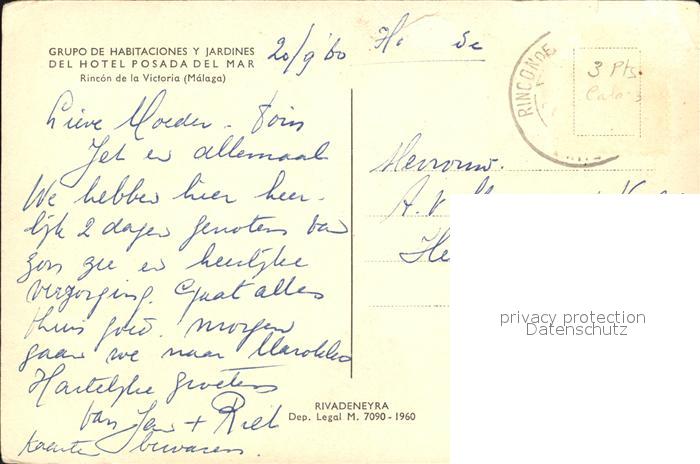 GRUPO DE HABITACIONES Y JARDINES
DEL HOTEL POSADA DEL MAR
Rincón de la Victoria (Málaga)
20/9 '60
RINCON DE
3 Pts.
Lieve Moeder - Toin
Jet en allemaal
We hebben hier heer-
lijk 2 dagen genoten van
zon zee en heerlijke
verzorging. Gaat alles
thuis goed. Morgen
gaan we naar Marokko
Hartelijke groeten
van Jan + Riet
Kaarten bewaren.
Mevrouw.
A. v
He
RIVADENEYRA
Dep. Legal M. 7090 - 1960
privacy protection
Datenschutz